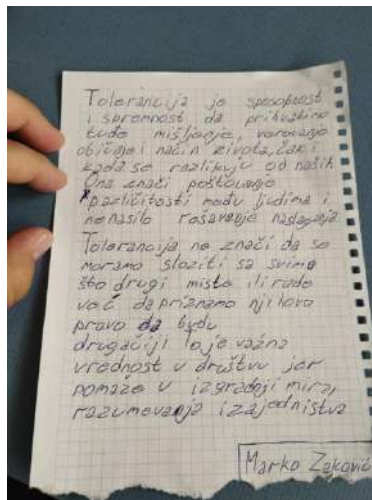 Tolerancija je sposobnost
i spremnost da prihvatimo
tuđe mišljenje, verovanje
običaje i način života, čak i
kada se razlikuju od naših
Ona znači poštovanje
različitosti među ljudima i
nenasilo rešavanje neslaganja
Tolerancija ne znači da se
moramo složiti sa svime
što drugi misle ili rade
već da priznamo njihovo
pravo da budu
drugačiji to je važna
vrednost u društvu jer
pomaže u izgradnji mira,
razumevanja i zajedništva
Marko Zeković